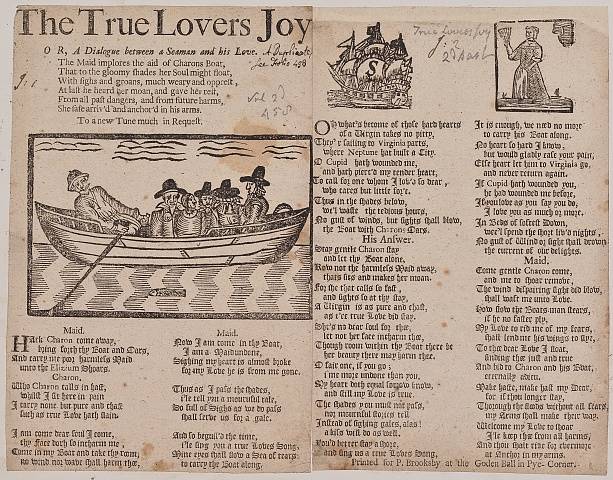 The True Lovers Joy
O R, A Dialogue between a Seaman and his Love.
The Maid implores the aid of Charons Boat,
That to the gloomy shades her Soul might float,
With sighs and groans, much weary and opprest,
At last he heard her moan, and gave her rest,
From all past dangers, and from future harms,
She safe arriv'd and anchor'd in his arms.
To a new Tune much in Request.
A Duplicate
See Folio 458
Vol 2d
458
Charon
Maid.
HArk Charon come away,
bring forth thy Boat and Oars,
And carry me poor harmless Maid
unto the Elizium Shoars.
Charon.
Who Charon calls in hast,
whilst I sit here in pain
I carry none but pure and chast
such as true Love hath slain
I am come dear soul I come,
thy Face doth so incharm me,
Come in my Boat and take thy room,
no wind nor wave shall harm thee.
Maid.
Now I am come in thy Boat,
I am a Maid undone,
Sighing my heart is almost broke
for my Love he is from me gone.
Thus as I pass the shades,
i'le tell you a mournful tale,
So full of Sighs as we do pass
shall serve us for a gale.
And so beguil'd the time,
i'le sing you a true Loves Song,
Mine eyes shall flow a Sea of tears
to carry the Boat along,
S
True Lovers Joy
2d part
OH what's become of those hard hearts
of a Virgin takes no pitty,
They'r sailing to Virginia parts,
where Neptune hat built a City.
O Cupid hath wounded me,
and hath pierc'd my tender heart,
To call for one whom I lov'd so dear,
who cares but little for't.
Thus in the shades below,
we'l waste the tedious hours,
No gust of winds, but sighs shall blow,
the Boat with Charons Oars.
His Answer.
Stay gentle Charon stay
and let thy Boat alone,
Row not the harmless Maid away,
thats sits and makes her moan.
For she that calls so fast,
and sighs so at thy stay,
A Virgin is as pure and chast,
as e're true Love did slay.
She's no dear soul for thee,
let not her face incharm thee,
Though room within thy Boat there be
her beauty there may harm thee.
O fair one, if you go;
i'me more undone than you,
My heart doth equal sorrow know,
and still my Love is true.
The shades you must not pass,
nor mournful stories tell
Instead of sighing gales, alas!
a kiss will do as well.
You'd better stay a shore,
and sing us a true Loves Song,
It is enough, we need no more
to carry his Boat along.
No heart so hard I know,
but would gladly ease your pain,
Else heart let him to Virginia go,
and never return again.
If Cupid hath wounded you,
he had wounded me before,
If you love as you say you do,
I love you as much or more.
In Beds of softest Down,
wee'l spend the short liv'd nights,
No gust of Wind or sight shall drown
the current of our delights.
Maid.
Come gentle Charon come,
and me to shoar remove,
The wind dispairing sight did blow,
shall waft me unto Love.
How slow the Boats-man stears,
if he no faster ply,
My Love to rid me of my fears,
shall lend me his wings to flye.
To thee dear Love I float,
finding thee just and true
And bid to Charon and his Boat,
eternally adieu.
Make haste, make hast my Dear,
for if thou longer stay,
Through the floods without all fears,
my Arms shall make their way.
Welcome my Love to shoar
I'le keep thee from all harms,
And thou shalt ride for evermore
at Anchor in my arms.
Printed for P. Brooksby at the Goden Ball in Pye-Corner.